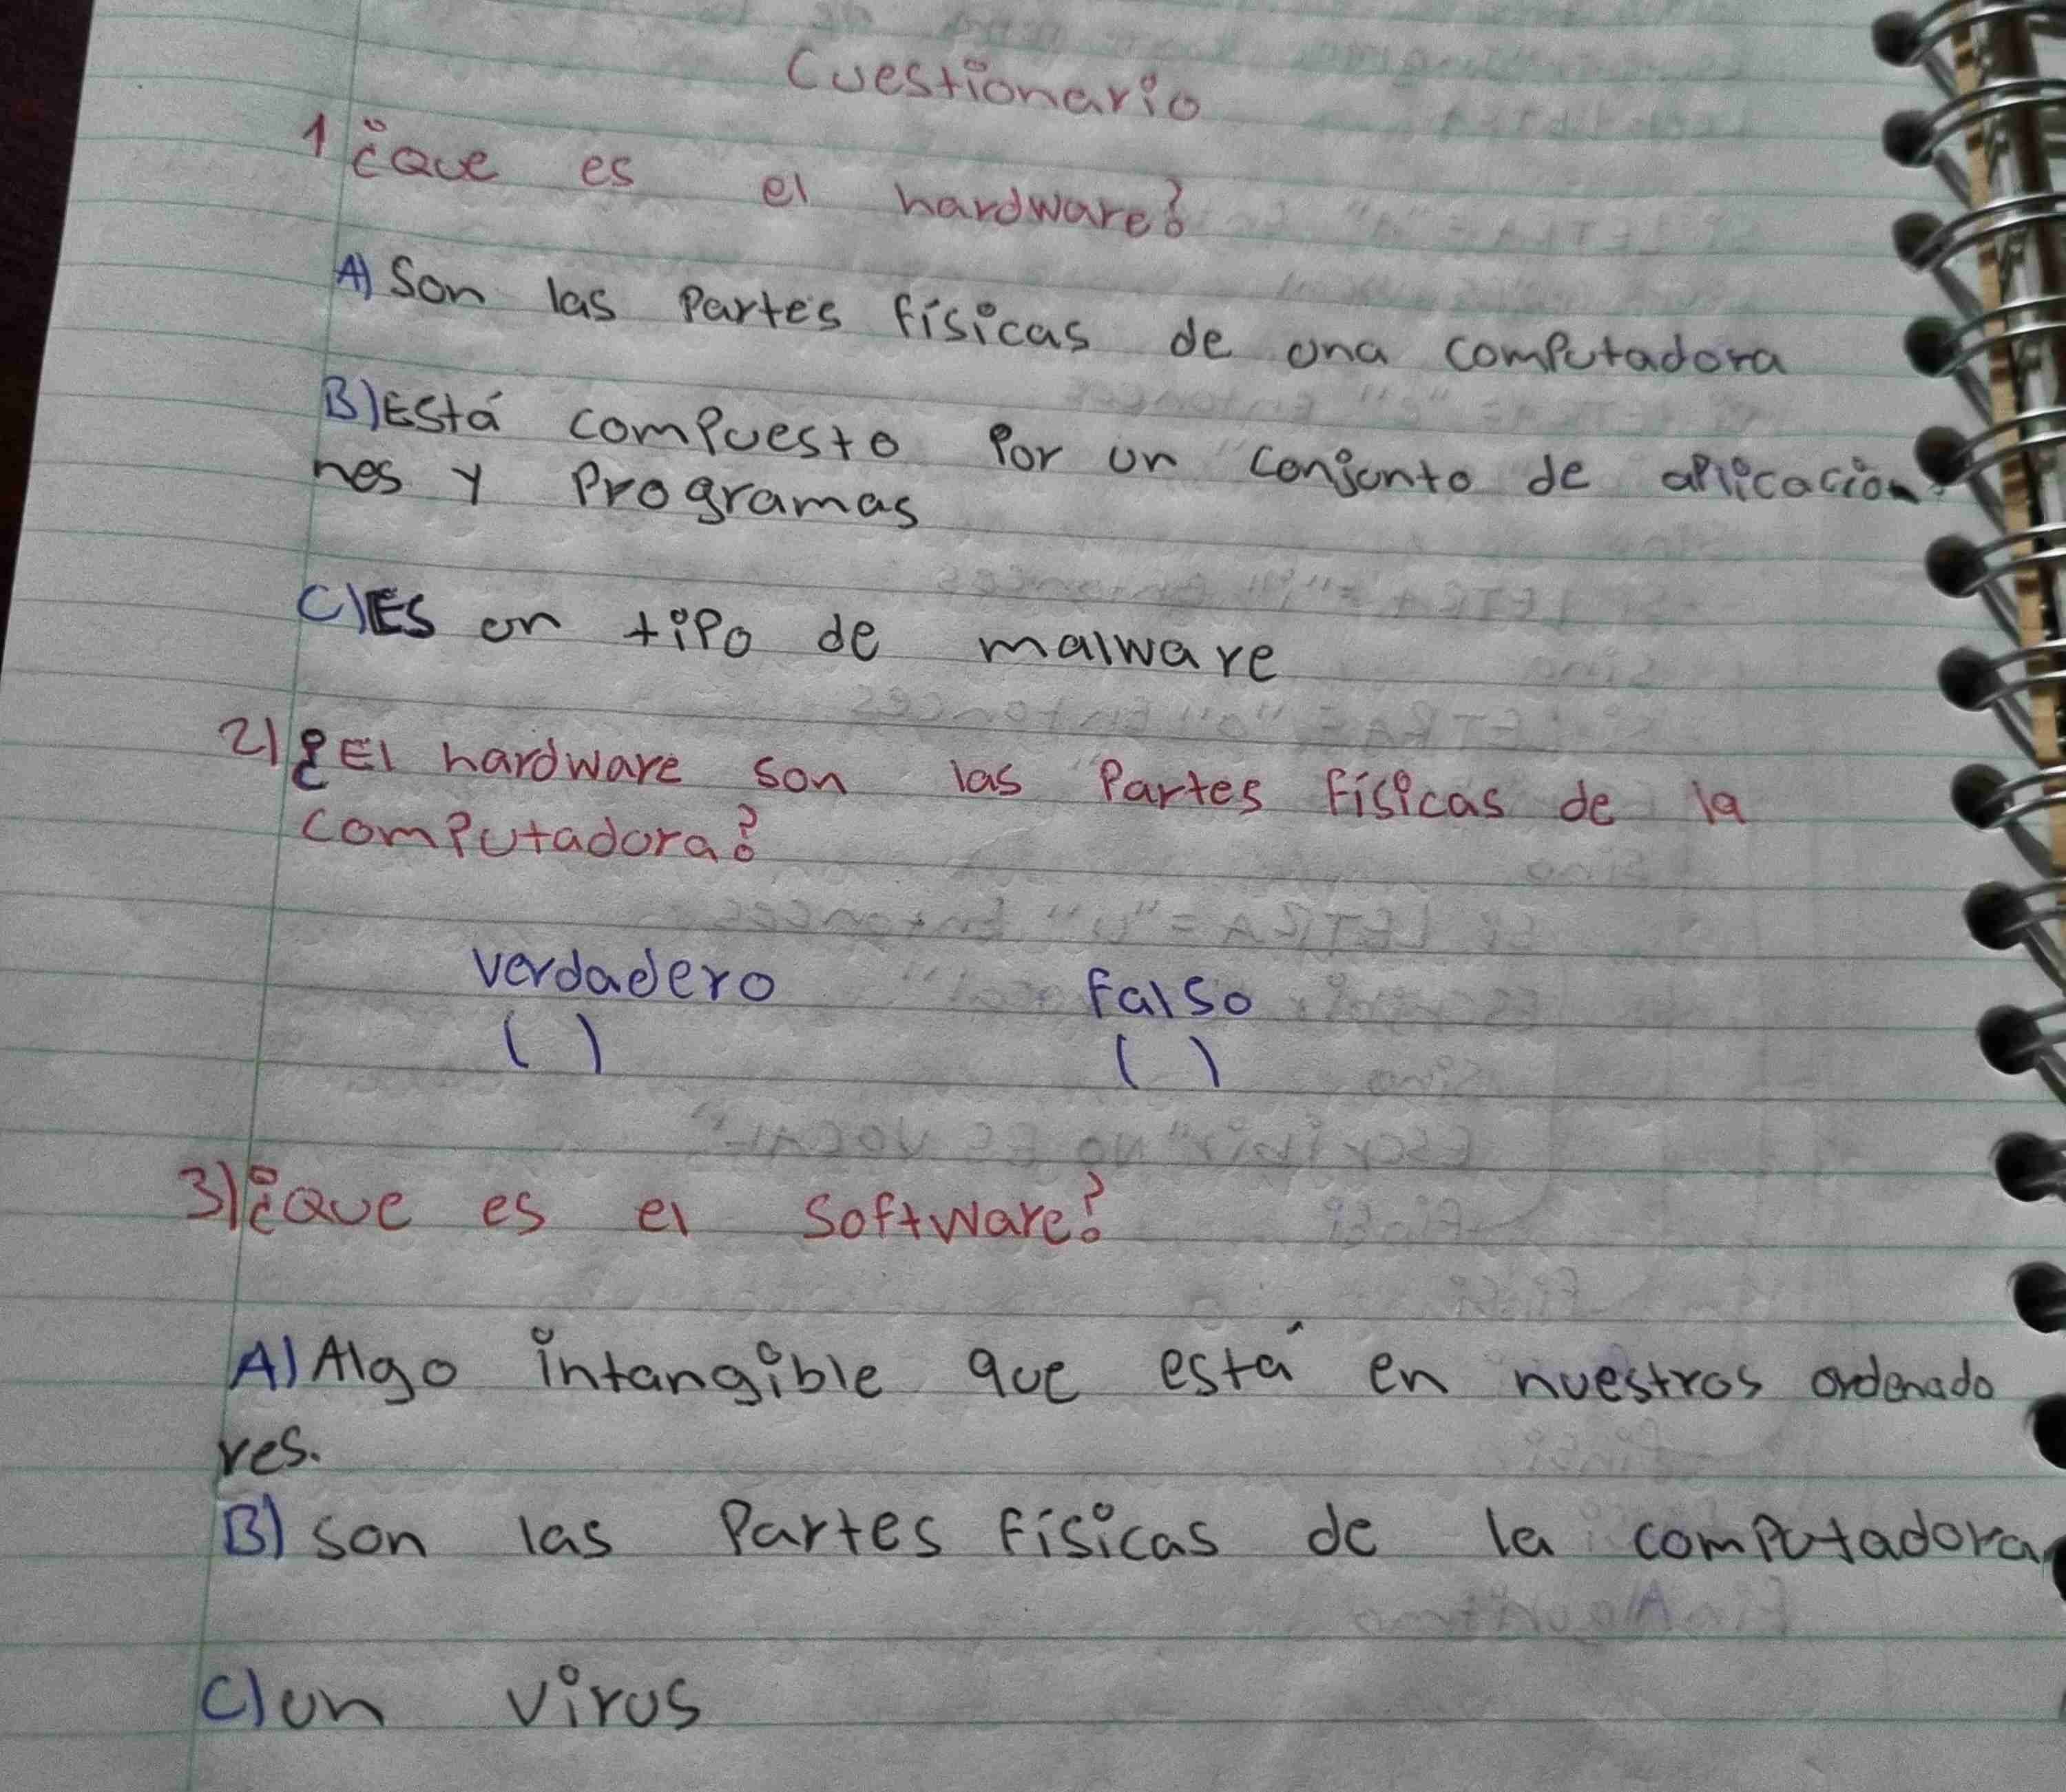 Cuestionario
1 ¿Que es el hardware?
A) Son las Partes físicas de una computadora
B) Está compuesto Por un conjunto de aplicacion
nes y Programas
C) Es un tipo de malware
2) ¿El hardware son las Partes físicas de la
computadora?
verdadero Falso
( ) ( )
3) ¿Que es el Software?
A) Algo intangible que está en nuestros ordenado
res.
B) son las Partes físicas de la computadora
C) un virus